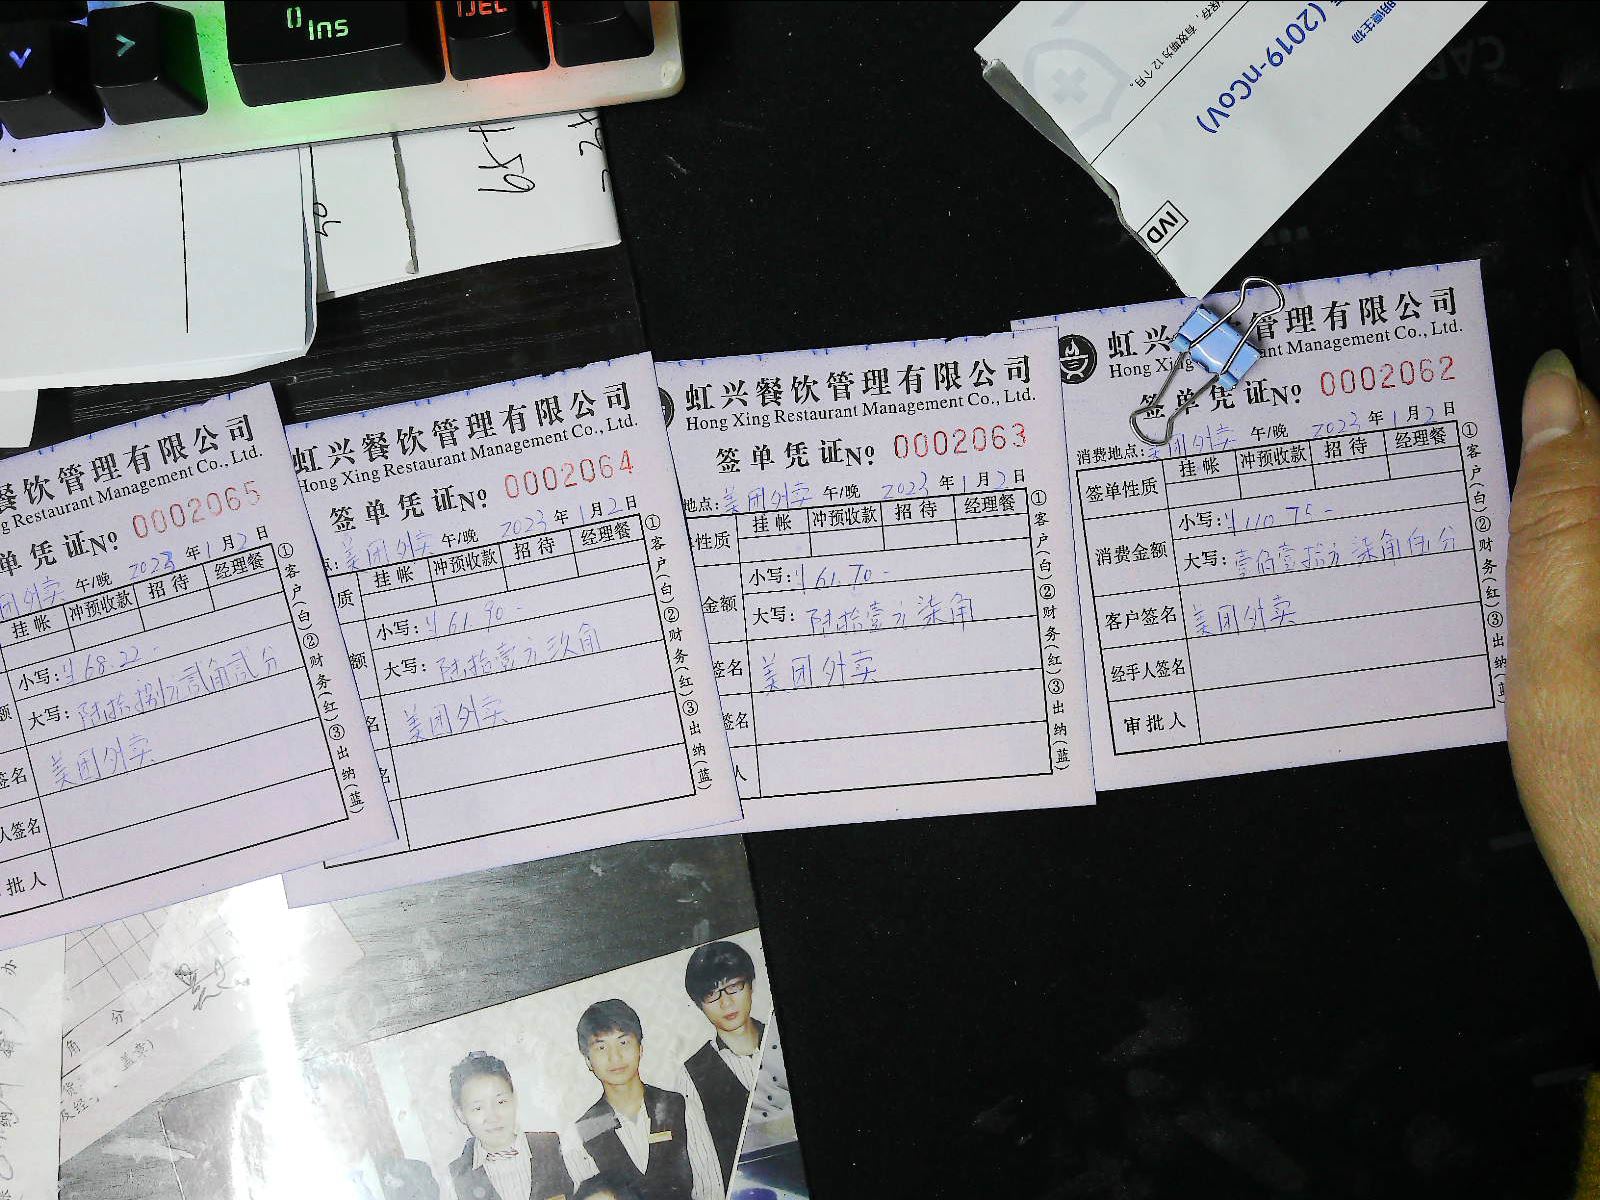 Ins
DEL
4-59
保存，有效期为12个月。
(2019-nCoV)
明德生物
IVD
餐饮管理有限公司
g Restaurant Management Co., Ltd.
单凭证No 0002065
团外卖 午/晚 2023 年 1 月 2 日
挂帐 冲预收款 招待 经理餐
小写: ¥68.22-
大写: 陆拾捌元贰角贰分
签名 美团外卖
人签名
批人
①客户(白)②财务(红)③出纳(蓝)
虹兴餐饮管理有限公司
Hong Xing Restaurant Management Co., Ltd.
签单凭证No 0002064
美团外卖 午/晚 2023 年 1 月 2 日
质 挂帐 冲预收款 招待 经理餐
小写: ¥61.90-
额 大写: 陆拾壹元玖角
名 美团外卖
名
①客户(白)②财务(红)③出纳(蓝)
虹兴餐饮管理有限公司
Hong Xing Restaurant Management Co., Ltd.
签单凭证No 0002063
地点: 美团外卖 午/晚 2023 年 1 月 2 日
性质 挂帐 冲预收款 招待 经理餐
小写: ¥61.70-
金额 大写: 陆拾壹元柒角
签名 美团外卖
签名
人
①客户(白)②财务(红)③出纳(蓝)
虹兴管理有限公司
Hong Xing ant Management Co., Ltd.
签单凭证No 0002062
消费地点: 美团外卖 午/晚 2023 年 1 月 2 日
签单性质 挂帐 冲预收款 招待 经理餐
小写: ¥110.75-
消费金额 大写: 壹佰壹拾元柒角伍分
客户签名 美团外卖
经手人签名
审批人
①客户(白)②财务(红)③出纳(蓝)
角 分
盖章)